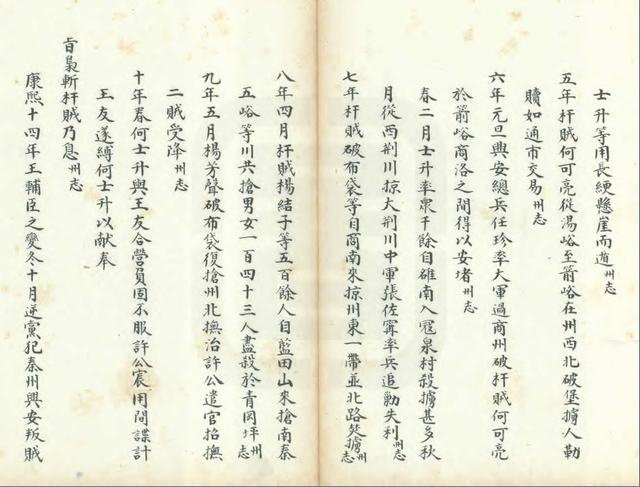 士升等用長綆懸崖而遁州志
五年杆賊何可亮從湯峪至箭峪在州西北破堡擄人勒
贖如通市交易州志
六年元旦興安總兵任珍率大軍過商州破杆賊何可亮
於箭峪商洛之間得以安堵州志
春二月士升率眾千餘自雒南入冦泉村殺擄甚多秋
月從西荆川掠大荆川中軍張佐寗率兵追勦失利州志
七年杆賊破布袋等自商南來掠州東一帶並北路焚擄州志
八年四月杆賊楊結子等五百餘人自藍田山來搶南秦
五峪等川共搶男女一百四十三人盡殺於青岡坪州志
九年五月楊芳聲破布袋復搶州北撫治許公遣官招撫
二賊受降州志
十年春何士升與王友合營員固不服許公宸用間諜計
王友遂縛何士升以献奉
旨梟斬杆賊乃息州志
康熙十四年王輔臣之變冬十月逆黨犯秦州興安叛賊